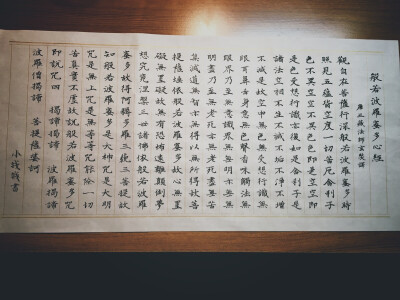 般若波羅蜜多心經
唐三藏法師玄奘譯
觀自在菩薩行深般若波羅蜜多時
照見五蘊皆空度一切苦厄舍利子
色不異空空不異色色即是空空即
是色受想行識亦復如是舍利子是
諸法空相不生不滅不垢不淨不增
不減是故空中無色無受想行識無
眼耳鼻舌身意無色聲香味觸法無
眼界乃至無意識界無無明亦無無
明盡乃至無老死亦無老死盡無苦
集滅道無智亦無得以無所得故菩
提薩埵依般若波羅蜜多故心無罣
礙無罣礙故無有恐怖遠離顛倒夢
想究竟涅槃三世諸佛依般若波羅
蜜多故得阿耨多羅三藐三菩提故
知般若波羅蜜多是大神咒是大明
咒是無上咒是無等等咒能除一切
苦真實不虛故說般若波羅蜜多咒
即說咒曰 揭諦揭諦 波羅揭諦
波羅僧揭諦 菩提薩婆訶
小淺淺書